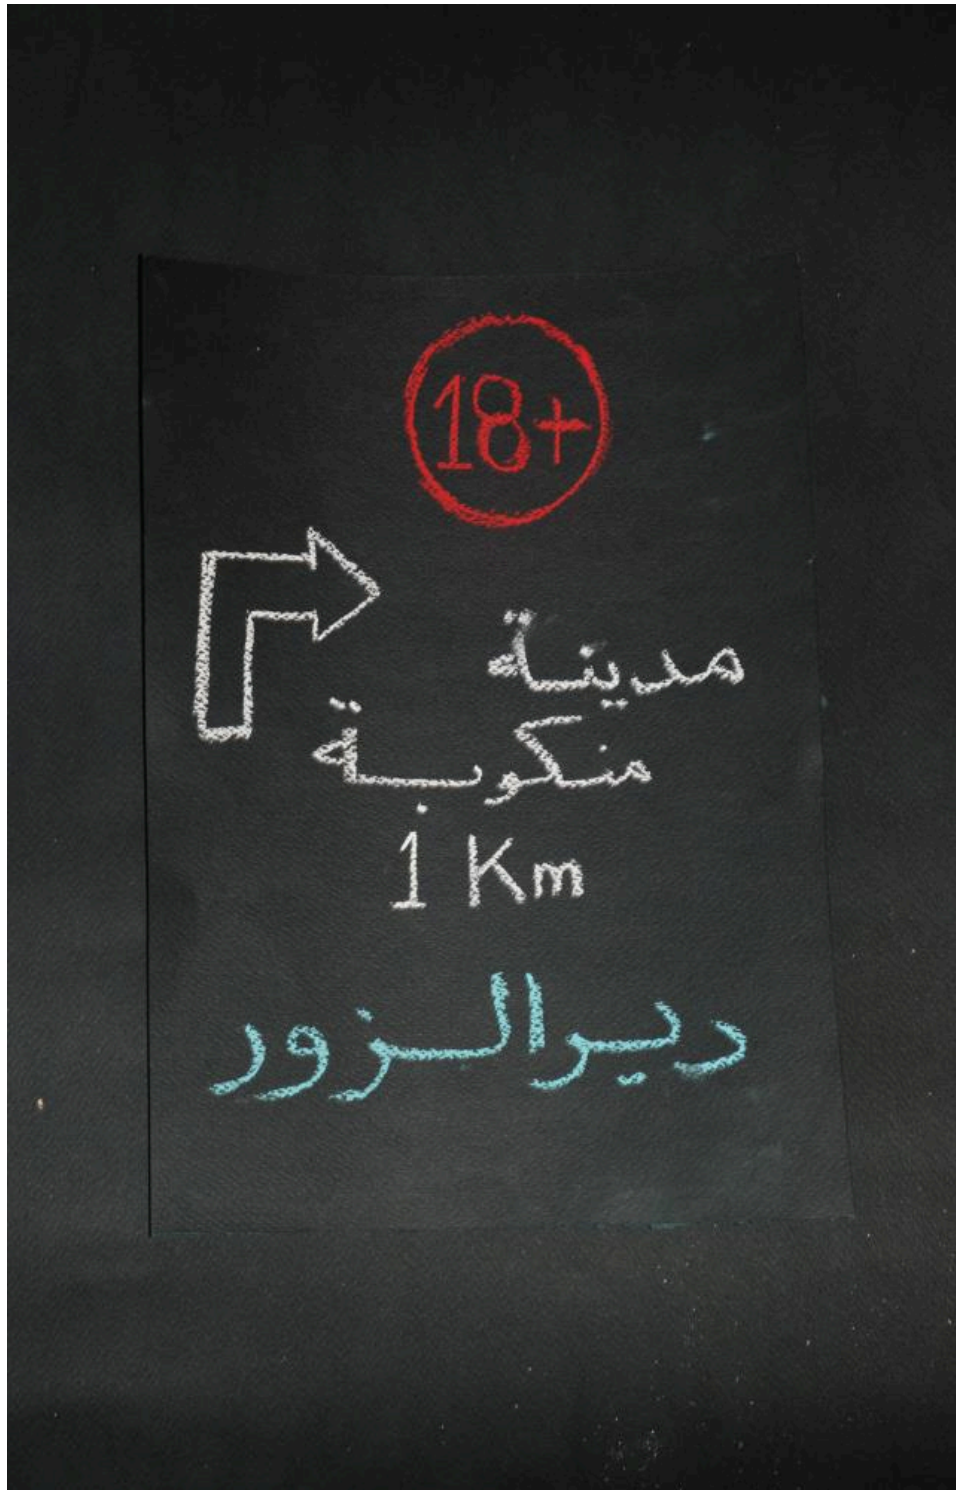 18+
مدينة
منكوبة
1 Km
دير الزور